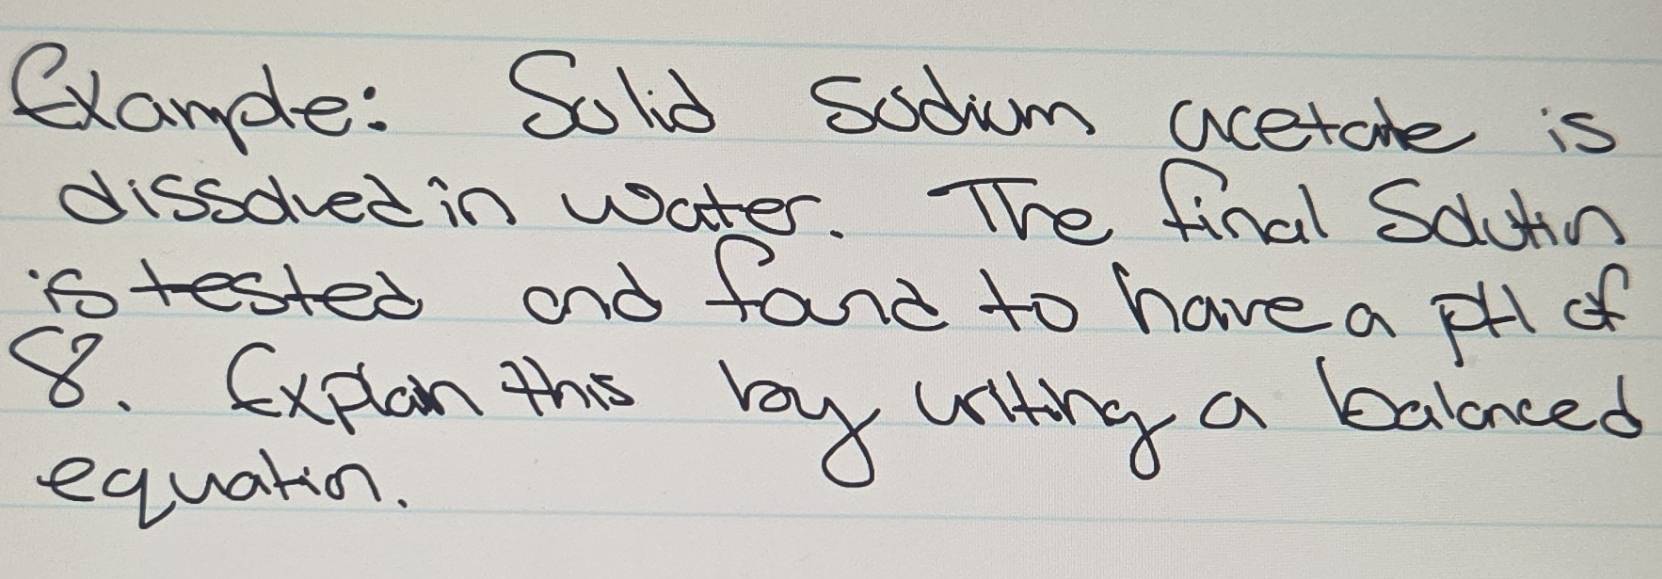 Example: Solid sodium acetate is
dissolved in water. The final solution
is tested and found to have a pH of
8. Explain this by writing a balanced
equation.